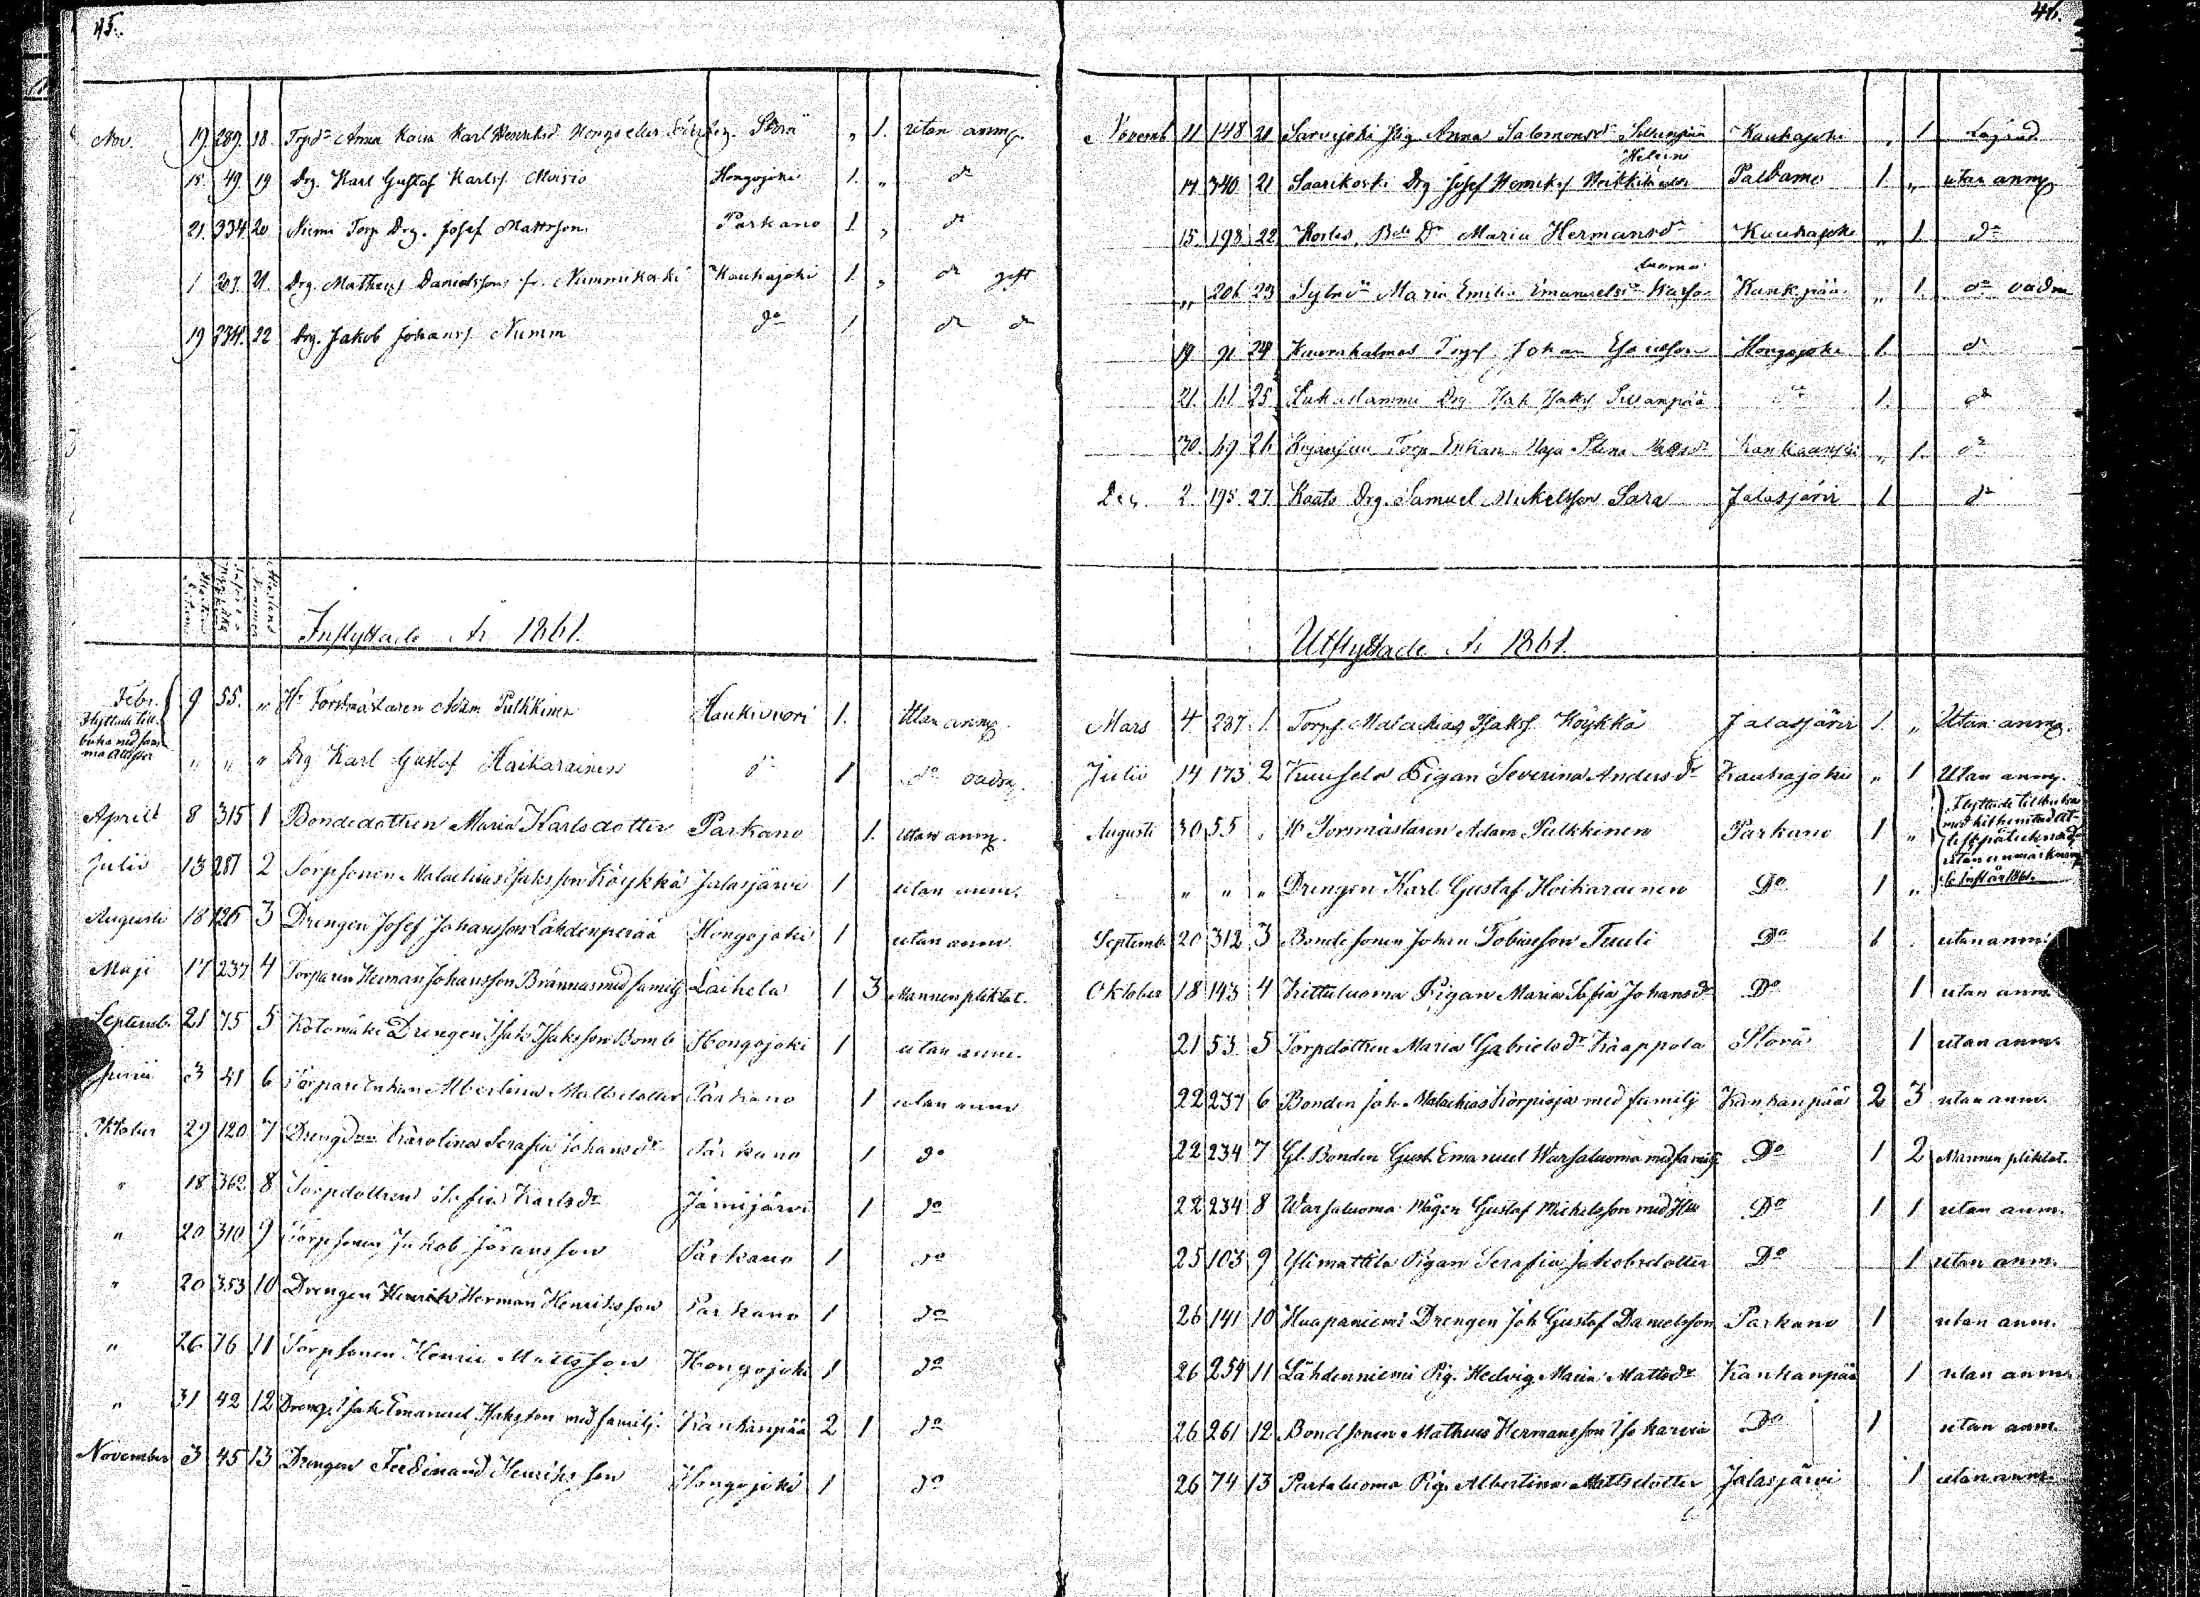 45.
Nov. 19. 289. 18. Torpd:r Anna Karl Henriksd:r Storå „ 1. utan anmg.
15. 49 19 Drg. Karl Gustaf Karlss. Moisio Hongojoki 1. „ d:o
21. 334. 20 Niemi Torp Drg. Josef Mattsson Parkano 1 „ d:o
1 207. 21. Drg. Matheus Danielsson fr. Nummikoski Kauhajoki 1. „ d:o gift
19 234. 22 Drg. Jakob Johanss. Numm d:o 1 d:o d:o
Inflyttade År 1861.
Febr. 9 55. „ Hr Forstmästaren Adam Pulkkinen Haukivuori 1. Utan anmg.
Flyttade till-
baka med sam-
ma attester
„ „ „ Drg Karl Gustaf Haikarainen d:o 1 d:o
April 8 315 1 Bondedottren Maria Karlsdotter Parkano 1. utan anmg.
Julii 13 287 2 Torpsonen Malachias Isaksson Köykkä Jalasjärvi 1 utan anm.
Augusti 18 126 3 Drengen Josef Johansson Lähdenperää Hongojoki 1 utan anm
Maji 17 237 4 Torparen Herman Johansson Brännas med familj Laihela 1 3 Mannen pliktat.
Septemb. 21 75 5 Kotomäki Drengen Isak Isaksson Bomb Hongojoki 1 utan anm.
Junii 3 41 6 Torpare Enkan Albertina Mattsdotter Parkano 1 utan anm
Oktober 29 120 7 Karolina Serafia Johansd:r Parkano 1 d:o
„ 18 362 8 Torpdottren Sofia Karlsd:r Jämijärvi 1 d:o
„ 20 310 9 Torpsonen Jakob Göransson Parkano 1 d:o
„ 20 353 10 Drengen Henrik Herman Henriksson Parkano 1 d:o
„ 26 76 11 Torpsonen Henric Mattsson Hongojoki 1 d:o
„ 31 42 12 Dreng. Isak Emanuel Isaksson med familj. Kankanpää 2 1 d:o
November 3 45 13 Drengen Ferdinand Henriksson Hongojoki 1 d:o
46.
Novemb 11 148 20 Sarvijoki Pig. Anna Salomonsd:r Kauhajoki „ 1
14 340 21 Saarikoski Drg Josef Henriks. Paldamo 1. „ utan anmg
15. 198 22 Koski, B:de D:r Maria Hermansd:r Kauhajoki „ 1. d:o
luoma
„ 206 23 Maria Emilia Emanuelsd:r Warsa Kankpää „ 1. d:o
19 91 24 Torps. Johan Esaiasson Hongojoki 1. d:o
21. 61 25 Drg Isak Isaks. Sillanpää d:o 1. d:o
30. 69 26 Torp Enkan Maja Stina Kankaanpää „ 1. d:o
Dec. 2. 195. 27 Kaato Drg. Samuel Mickelsson Sara Jalasjärvi 1 d:o
Utflyttade År 1861.
Mars 4 287 1. Torps. Malachias Isakss. Köykkä Jalasjärvi 1. „ Utan anmg.
Julii 14 173 2 Kuusela Pigan Severina Andersd:r Kauhajoki „ 1 Utan anmg.
Augusti 30 55 „ Hr Formästaren Adam Pulkkinen Parkano 1 „
Flyttade tillbaka
med hit hemtad at-
test påteknad
utan anmärkning
„ „ „ Drengen Karl Gustaf Hoikarainen D:o 1 „
Septemb. 20 312 3 Bondesonen Johan Tobiasson Tuuli D:o 1 utan anm.
Oktober 18 143 4 Kittuluoma Pigan Maria Sofia Johansd:r D:o 1 utan anm.
21 53 5 Torpdottren Maria Gabrielsd:r Kaappola Storå 1 utan anm.
22 237 6 Bonden Joh. Malachias Korpioja med familj Kankanpää 2 3 utan anm.
22 234 7 Gl. Bonden Gust. Emanuel Warsaluoma med familj D:o 1 2 Mannen pliktat.
22 234 8 Warsaluoma Mågen Gustaf Michelsson med Hu D:o 1 1 utan anm.
25 103 9 Ylimattila Pigan Serafia Jakobsdotter D:o 1 utan anm.
26 141 10 Haapaniemi Drengen Joh Gustaf Danielsson Parkano 1 utan anm.
26 254 11 Lähdenniemi Pig. Hedvig Maria Mattsd:r Kankanpää 1 utan anm.
26 261 12 Bondsonen Matheus Hermansson Iso karvia D:o 1 utan anm.
26 74 13 Partaluoma Pig. Albertina Mattsdotter Jalasjärvi 1 utan anm.